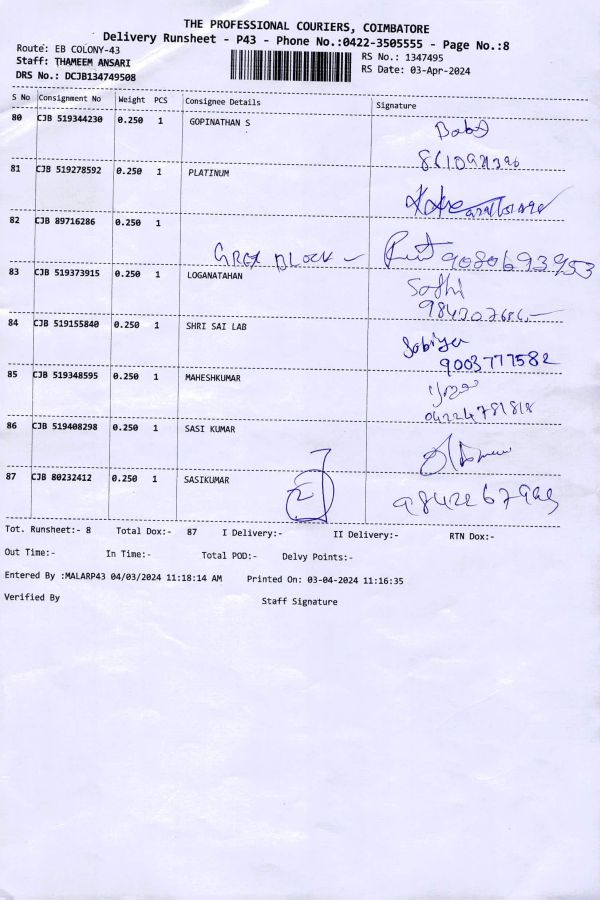 THE PROFESSIONAL COURIERS, COIMBATORE
Delivery Runsheet - P43 - Phone No.:0422-3505555 - Page No.:8
Route: EB COLONY-43
Staff: THAMEEM ANSARI
DRS No.: DCJB134749508
RS No.: 1347495
RS Date: 03-Apr-2024
S No Consignment No Weight PCS Consignee Details Signature
80 CJB 519344230 0.250 1 GOPINATHAN S
81 CJB 519278592 0.250 1 PLATINUM
82 CJB 89716286 0.250 1
GREX BLOCK 9080693953
83 CJB 519373915 0.250 1 LOGANATAHAN
84 CJB 519155840 0.250 1 SHRI SAI LAB
9003777582
85 CJB 519348595 0.250 1 MAHESHKUMAR
04224781818
86 CJB 519408298 0.250 1 SASI KUMAR
87 CJB 80232412 0.250 1 SASIKUMAR
2
Tot. Runsheet:- 8 Total Dox:- 87 I Delivery:- II Delivery:- RTN Dox:-
Out Time:- In Time:- Total POD:- Delvy Points:-
Entered By :MALARP43 04/03/2024 11:18:14 AM Printed On: 03-04-2024 11:16:35
Verified By Staff Signature